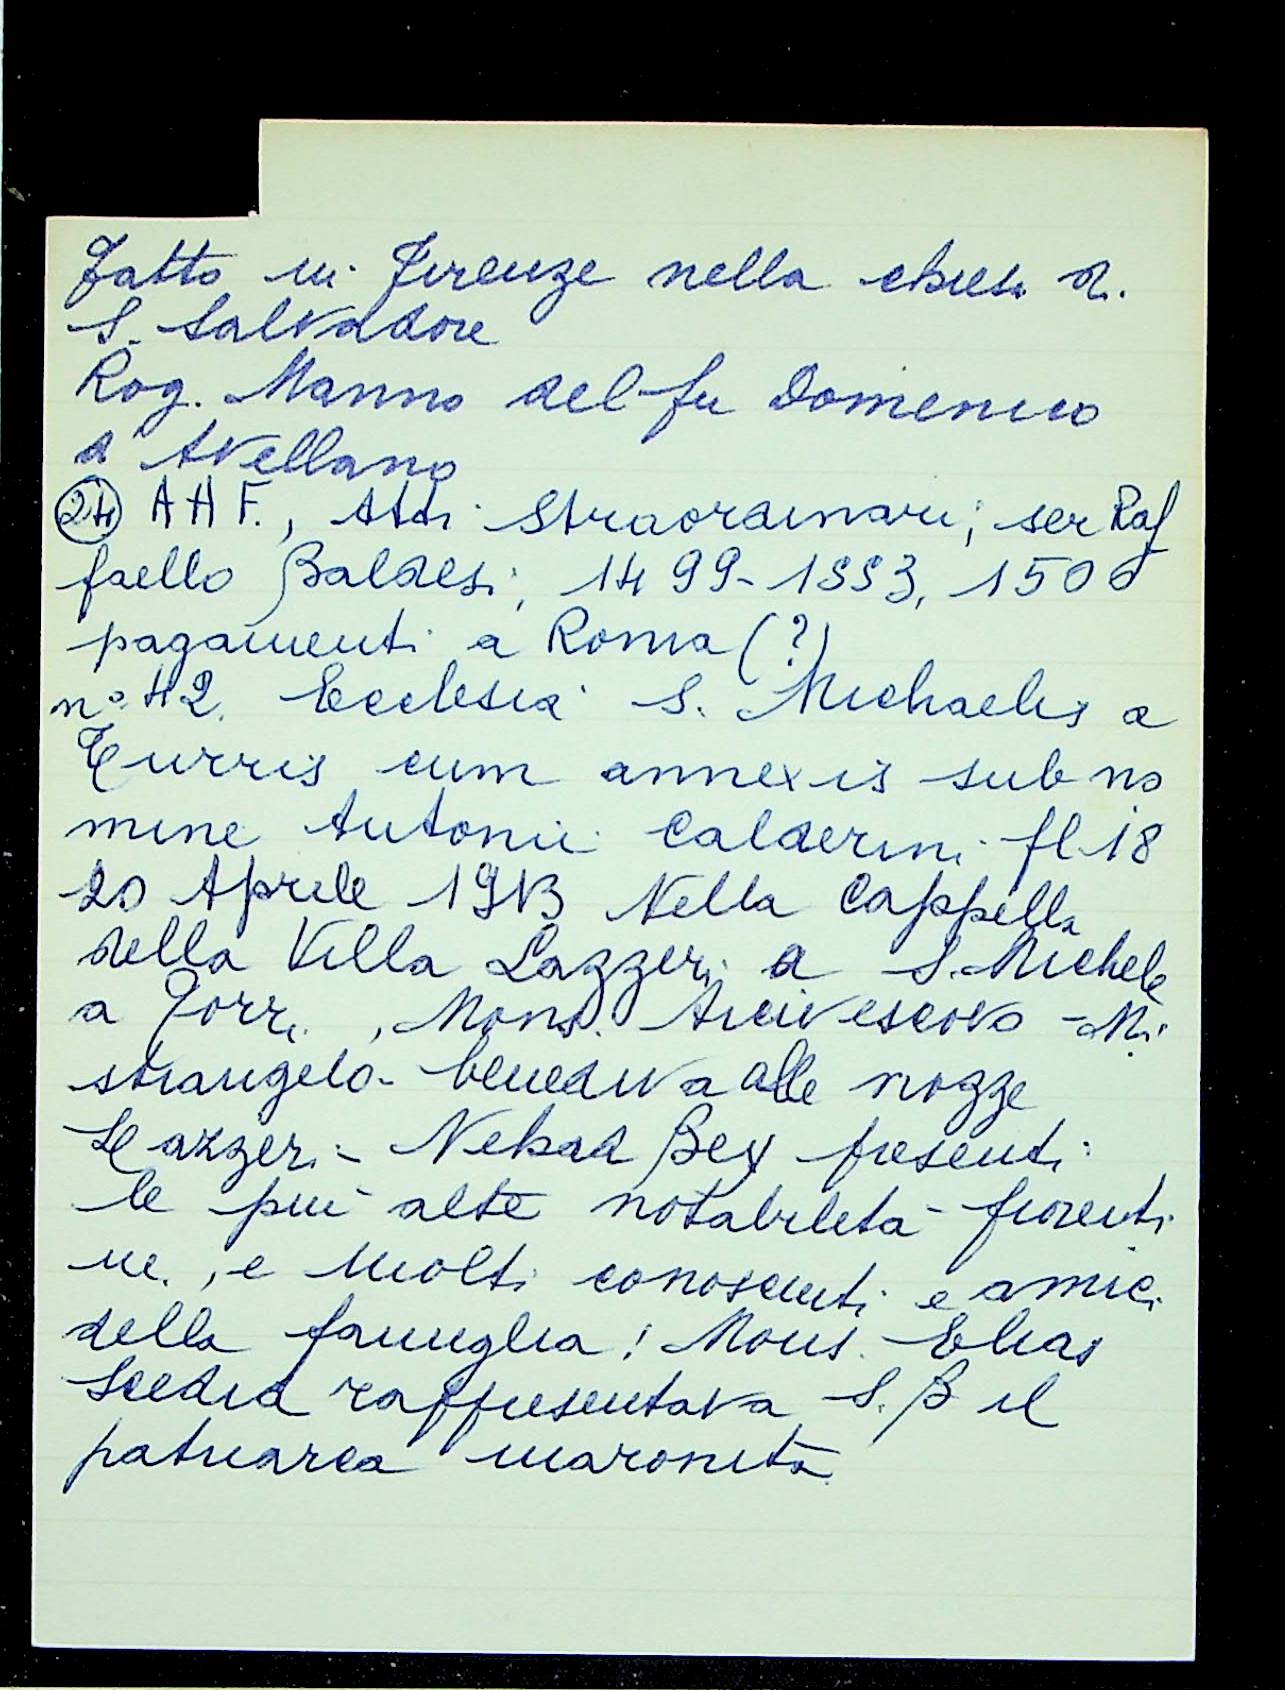 Fatto in Firenze nella chiesa di
S. Salvadore
Rog. Manno del fu Domenico
d'Avellano
(24) A A F., Atti Straordinari; ser Raf
faello Baldesi; 1499-1553, 1500
pagamenti a Roma (?)
n° 42. Ecclesia S. Michaelis a
Turris cum annexis sub no
mine Antonii Calderini fl. 18
20 Aprile 1913 Nella Cappella
della Villa Lazzeri a S. Michele
a Torri, Mons. Arcivescovo Mi
strangelo benediva alle nozze
Lazzeri - Nehad Bey presenti
le più alte notabilità fiorenti
ne, e molti conoscenti e amici
della famiglia; Mons. Elias
Scedid rappresentava S. B il
patriarca maronita